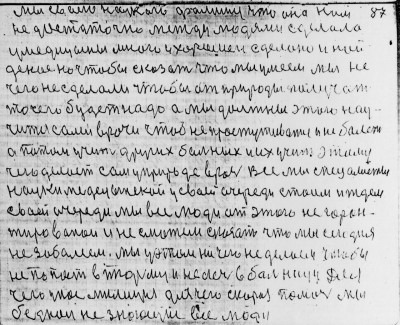 мы своим наукам данному что она нам 87
не достаточно между людями сделала
у медицины много и хорошего сделано и ней
деное но чтобы сказат что мы умеем мы не
чего не сделали чтобы от природы получат
то чего будет надо а мы должны этого нау-
чится сами врачи чтоб не простуживатся и не болеть
а потом учит других болных и их учит этому
чего делает сам у природе врач все мы специалисты
науки медецынской у своей очереди стоим и ждем
своей очереди мы все люди от этого не горан-
тированои и не можем сказать что мы сегодня
не заболеем. мы у этом ни чего не делаем чтобы
не попаст в тюрму и не слеч в болницу Для
чего мое милиция для чего скорая помоч мы
бедныи не знающии все люди